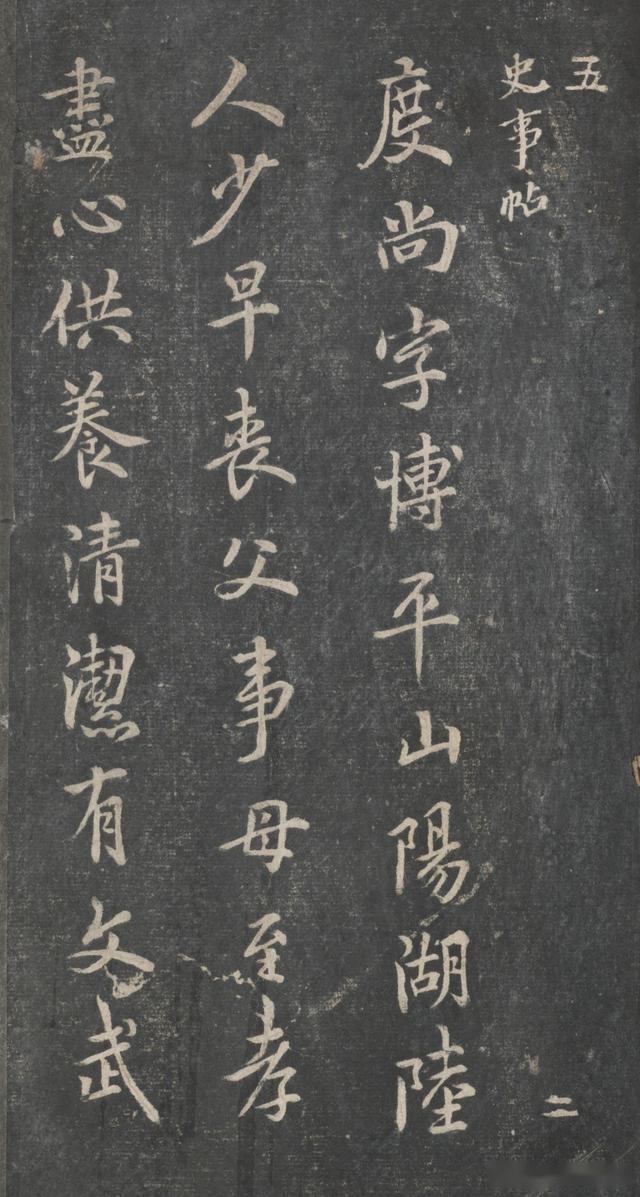 五
史事帖
二
度尚字博平山陽湖陸
人少早喪父事母至孝
盡心供養清潔有文武